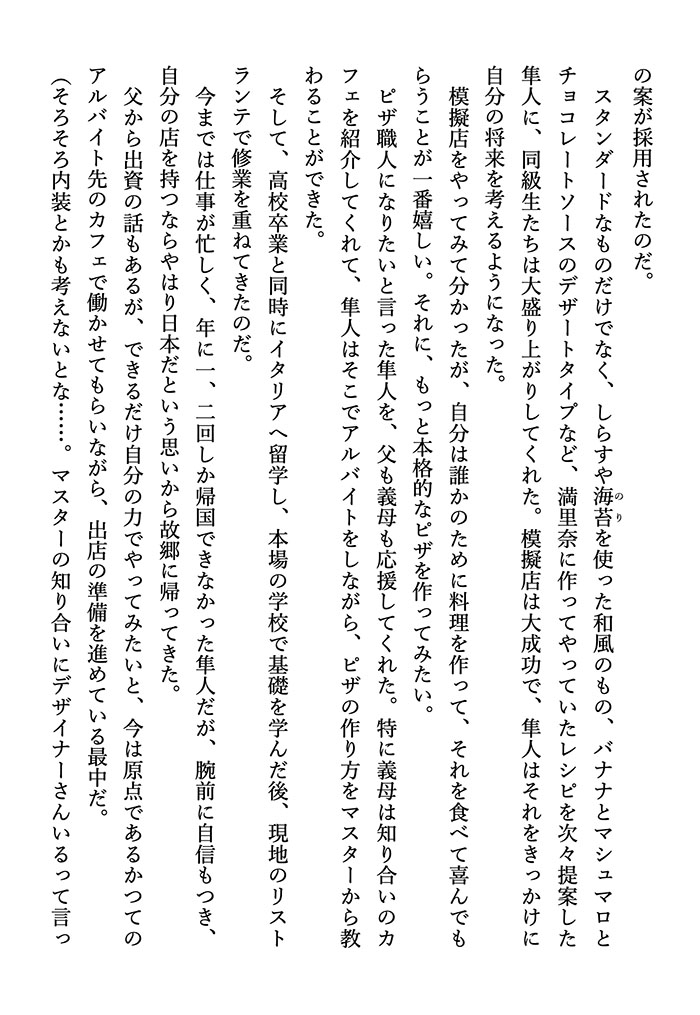 の案が採用されたのだ。
　スタンダードなものだけでなく、しらすや海苔を使った和風のもの、バナナとマシュマロと
のり
チョコレートソースのデザートタイプなど、満里奈に作ってやっていたレシピを次々提案した
隼人に、同級生たちは大盛り上がりしてくれた。模擬店は大成功で、隼人はそれをきっかけに
自分の将来を考えるようになった。
　模擬店をやってみて分かったが、自分は誰かのために料理を作って、それを食べて喜んでも
らうことが一番嬉しい。それに、もっと本格的なピザを作ってみたい。
　ピザ職人になりたいと言った隼人を、父も義母も応援してくれた。特に義母は知り合いのカ
フェを紹介してくれて、隼人はそこでアルバイトをしながら、ピザの作り方をマスターから教
わることができた。
　そして、高校卒業と同時にイタリアへ留学し、本場の学校で基礎を学んだ後、現地のリスト
ランテで修業を重ねてきたのだ。
　今までは仕事が忙しく、年に一、二回しか帰国できなかった隼人だが、腕前に自信もつき、
自分の店を持つならやはり日本だという思いから故郷に帰ってきた。
　父から出資の話もあるが、できるだけ自分の力でやってみたいと、今は原点であるかつての
アルバイト先のカフェで働かせてもらいながら、出店の準備を進めている最中だ。
（そろそろ内装とかも考えないとな……。マスターの知り合いにデザイナーさんいるって言っ